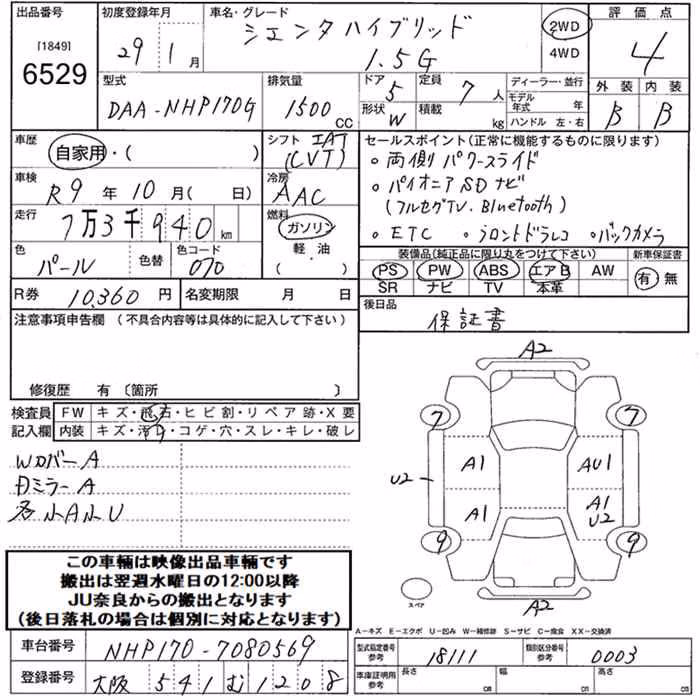 出品番号 初度登録年月 車名・グレード 評価点
[1849] 6529 29年1月 シエンタハイブリッド 1.5G 2WD 4WD 4
外装 内装
B B
型式 排気量 ドア 5 定員 7人 ディーラー・並行
DAA-NHP170G 1500cc 形状 W 積載 kg モデル年式 年
ハンドル 左・右
車歴 自家用・( ) シフト IAT (CVT)
セールスポイント(正常に機能するものに限ります)
○両側パワースライド
○パイオニアSDナビ
(フルセグTV.Bluetooth)
○ETC ○フロントドラレコ ○バックカメラ
車検 R9年10月( 日) 冷房 AAC
走行 7万3千940km 燃料 ガソリン・軽油・( )
色 パール 色替 色コード 070
装備品(純正品に限り丸をつけて下さい) 新車保証書
PS PW ABS エアB AW 有・無
SR ナビ TV 本革
R券 10,360円 名変期限 月 日
後日品
保証書
注意事項申告欄(不具合内容等は具体的に記入して下さい)
修復歴 有〔箇所 〕
検査員 FW キズ・飛石・ヒビ割・リペア跡・X要
記入欄 内装 キズ・汚れ・コゲ・穴・スレ・キレ・破レ
WカバーA
ミラーA
各小A小U
A2
7 7
A1 AU1
U2
A1 A1 U2
9 9
スペア
A2
この車輌は映像出品車輌です
搬出は翌週水曜日の12:00以降
JU奈良からの搬出となります
(後日落札の場合は個別に対応となります)
A-キズ E-エクボ U-凹み W-補修跡 S-サビ C-腐食 XX-交換済
車台番号 NHP170-7080569
型式指定番号 参考 18111 類別区分番号 参考 0003
登録番号 大阪 541 む 1208
車庫証明用 参考 長さ cm 幅 cm 高さ cm